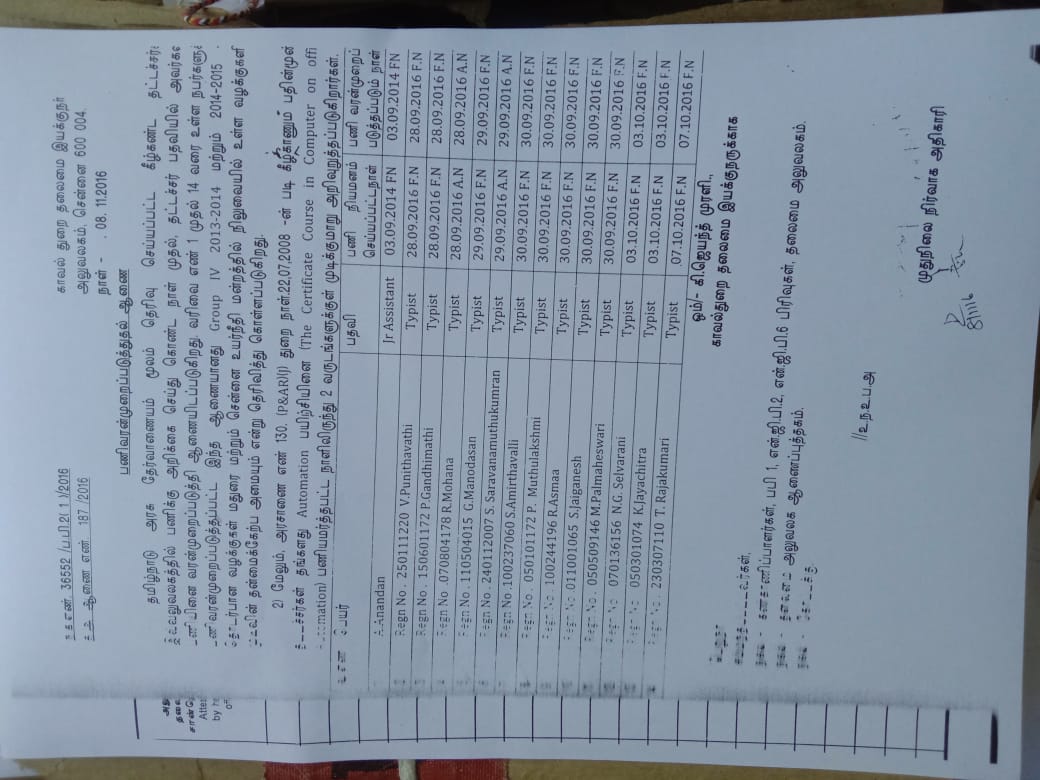 ந.க.எண். 36552 /பயி.2( 1 )/2016
காவல் துறை தலைமை இயக்குநர்
அலுவலகம், சென்னை 600 004.
ஆணை எண். 187 /2016
நாள் - . 08. 11.2016
பணிவரன்முறைப்படுத்துதல் ஆணை
தமிழ்நாடு அரசு தேர்வாணையம் மூலம் தெரிவு செய்யப்பட்ட கீழ்கண்ட தட்டச்சர்
இவ்வலுவலகத்தில் பணிக்கு அறிக்கை செய்து கொண்ட நாள் முதல், தட்டச்சர் பதவியில் அவர்கள
பணியினை வரன்முறைப்படுத்தி ஆணையிடப்படுகிறது. வரிசை எண் 1 முதல் 14 வரை உள்ள நபர்களுக்
பணிவரன்முறைப்படுத்தப்பட்ட இந்த ஆணையானது Group IV 2013-2014 மற்றும் 2014-2015
தொடர்பான வழக்குகள் மதுரை மற்றும் சென்னை உயர்நீதி மன்றத்தில் நிலுவையில் உள்ள வழக்குகளி
முடிவின் தன்மைக்கேற்ப அமையும் என்று தெரிவித்து கொள்ளப்படுகிறது.
2) மேலும், அரசாணை எண் 130, (P&AR)(J) துறை நாள்.22.07.2008 -ன் படி கீழ்காணும் பதின்முன்
தட்டச்சர்கள் தங்களது Automation பயிற்சியினை (The Certificate Course in Computer on offi
Automation) பணியமர்த்தபட்ட நாளிலிருந்து 2 வருடங்களுக்குள் முடிக்குமாறு அறிவுறுத்தப்படுகிறார்கள்.
பெயர் பதவி பணி நியமனம் செய்யப்பட்டநாள் பணி வரன்முறைப் படுத்தப்படும் நாள்
A.Anandan Jr Assistant 03.09.2014 FN 03.09.2014 FN
Regn No . 250111220 V.Punithavathi Typist 28.09.2016 F.N 28.09.2016 F.N
Regn No . 150601172 P.Gandhimathi Typist 28.09.2016 F.N 28.09.2016 F.N
Regn No . 070804178 R.Mohana Typist 28.09.2016 A.N 28.09.2016 A.N
Regn No . 110504015 G.Manodasan Typist 29.09.2016 F.N 29.09.2016 F.N
Regn No . 240112007 S. Saravanamuthukumran Typist 29.09.2016 A.N 29.09.2016 A.N
Regn No .100237060 S.Amirthavalli Typist 30.09.2016 F.N 30.09.2016 F.N
Regn No . 050101172 P. Muthulakshmi Typist 30.09.2016 F.N 30.09.2016 F.N
Regn No . 100244196 R.Asmaa Typist 30.09.2016 F.N 30.09.2016 F.N
Regn No. 011001065 S.Jaiganesh Typist 30.09.2016 F.N 30.09.2016 F.N
Regn No . 050509146 M.Palmaheswari Typist 30.09.2016 F.N 30.09.2016 F.N
Regn No . 070136156 N.G. Selvarani Typist 03.10.2016 F.N 03.10.2016 F.N
Regn No . 050301074 K.Jayachitra Typist 03.10.2016 F.N 03.10.2016 F.N
Regn No . 230307110 T. Rajakumari Typist 07.10.2016 F.N 07.10.2016 F.N
ஒம்/- கி.ஜெயந்த் முரளி.,
காவல்துறை தலைமை இயக்குநருக்காக
நகல் - கணிப்பாளர்கள், பயி 1, என்.ஜி.பி.2, என்.ஜி.பி.6 பிரிவுகள், தலைமை அலுவலகம்.
நகல் - அலுவலக ஆணைப்புத்தகம்.
//உ.ந.உ.ப.அ
முதுநிலை நிர்வாக அதிகாரி
8/11/16
Atte
by h